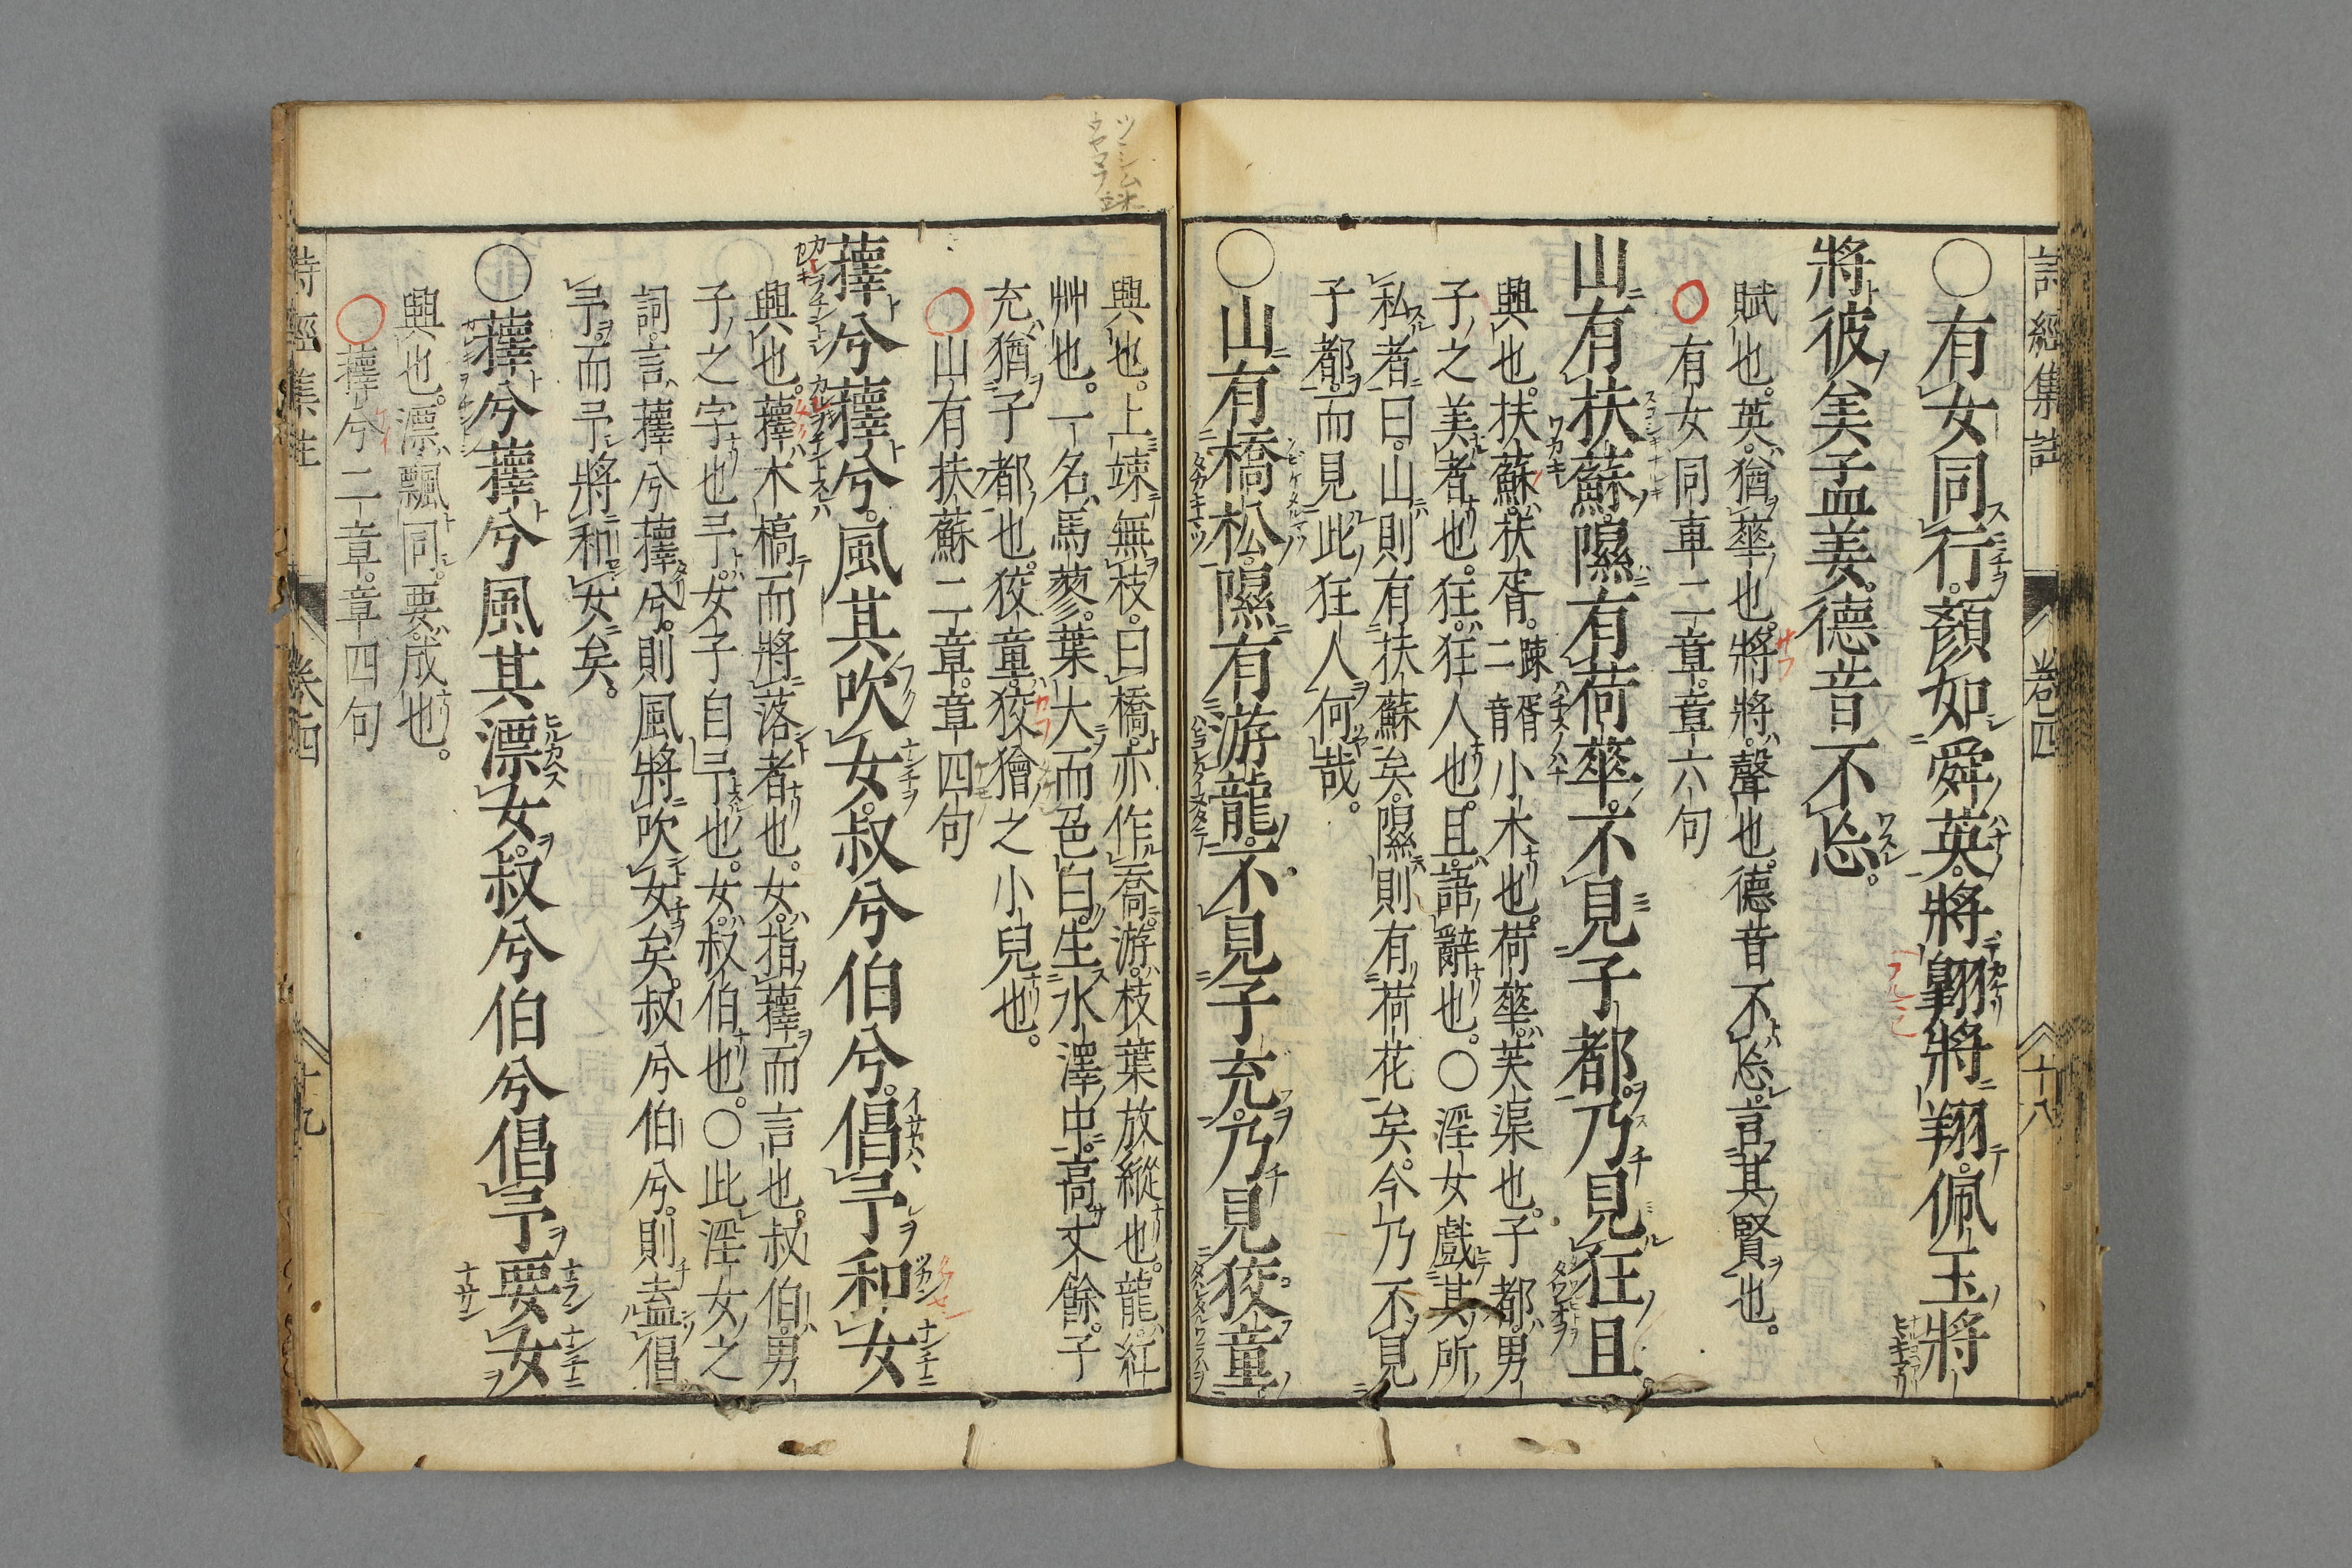 詩經集註 卷四 十八
○有女同行。顏如舜英。將翺將翔。佩玉將
將。彼美孟姜。德音不忘。
賦也。英猶華也。將將聲也。德音不忘。言其賢也。
○有女同車二章。章六句
山有扶蘇。隰有荷華。不見子都。乃見狂且。
興也。扶蘇。扶胥。小木也。荷華。芙渠也。子都。男
疎胥
二音
子之美者也。狂。狂人也。且。語辭也。○淫女戲其所
私者曰。山則有扶蘇矣。隰則有荷花矣。今乃不見
子都。而見此狂人何哉。
○山有橋松。隰有游龍。不見子充。乃見狡童
興也。上竦無枝。曰橋。亦作喬。游。枝葉放縱也。龍。紅
艸也。一名馬蓼。葉大而色白。生水澤中。高丈餘。子
充猶子都也。狡童。狡獪之小兒也。
○山有扶蘇二章。章四句
蘀兮蘀兮。風其吹女。叔兮伯兮。倡予和女
興也。蘀。木槁而將落者也。女。指蘀而言也。叔伯。男
子之字也。予。女子自予也。女。叔伯也。○此淫女之
詞。言蘀兮蘀兮。則風將吹女矣。叔兮伯兮。則盍倡
予。而予將和女矣。
○蘀兮蘀兮風其漂女。叔兮伯兮倡予要女
興也。漂飄同。要。成也。
○蘀兮二章。章四句
詩經集註 卷四 十九